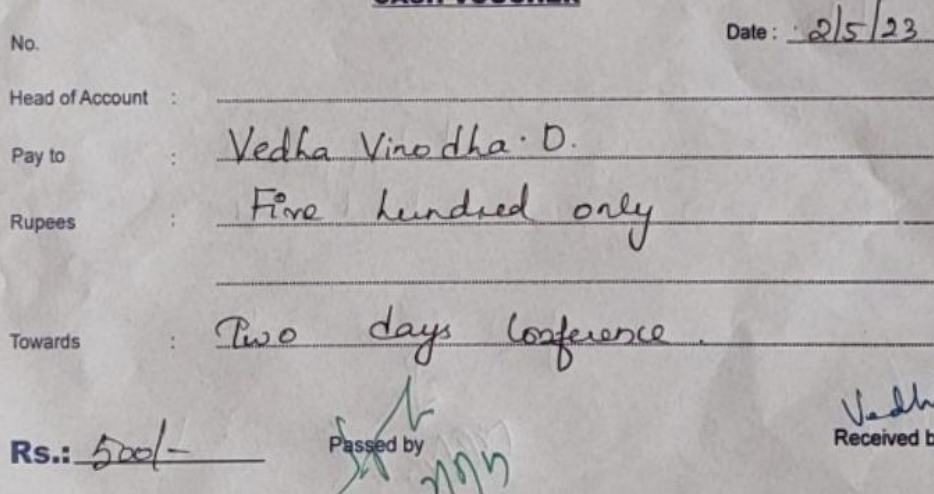 CASH VOUCHER
No.
Date : 2/5/23
Head of Account :
Pay to : Vedha Vinodha. D.
Rupees : Five hundred only
Towards : Two days Conference.
Rs.: 500/-
Passed by
Vedh
Received b